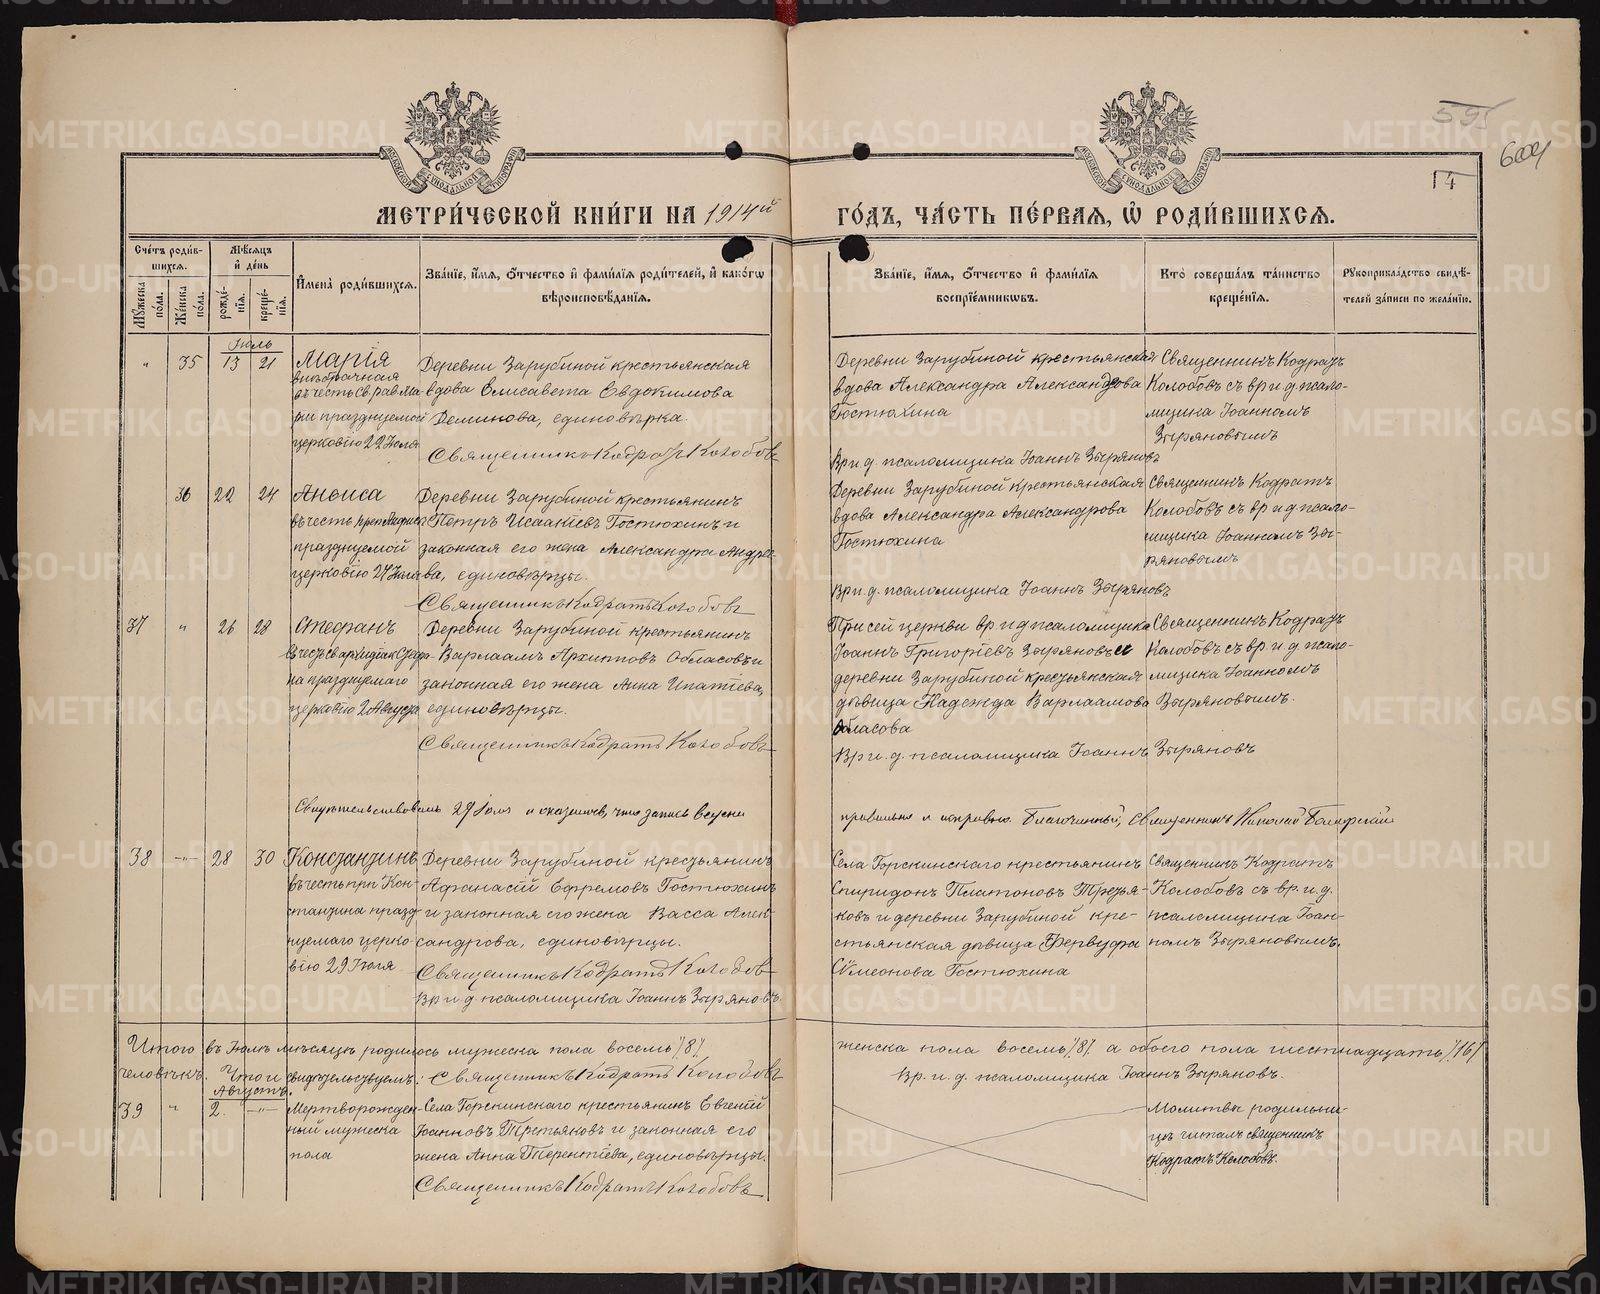 МЕТРИ́ЧЕСКОЙ КНИ́ГИ НА 1914й
ГО́ДЪ, ЧА́СТЬ ПЕ́РВАЯ, Ѽ РОДИ́ВШИХСѦ.
595
604
14
Сче́тъ роди́в-
шихся.
Мꙋжеска по́ла.
Же́нска по́ла.
Мѣ́сяцъ
и́ де́нь
рожде́-нїя.
креще́-нїя.
И҆мена̀ роди́вшихся.
Зва́нїе, и҆́мя, ѻ҆́тчество и҆ фами́лїя роди́телей, и҆ како́гѡ
вѣроисповѣ́данїя.
Зва́нїе, и҆́мя, ѻ҆́тчество и҆ фами́лїя
воспрїе́мникѡвъ.
Кто̀ соверша́лъ та́инство
креще́нїя.
Рꙋкоприкла́дство свидѣ́-
телей за́писи по жела́нїю.
Іюль
" 35 13 21
Марія
внѣбрачная
въ честь Св. рав. Ма-
ріи празднуемой
церковію 22 Іюля
Деревни Зарубиной крестьянская
вдова Елисавета Евдокимова
Деминова, единовѣрка.
Священникъ Кодратъ Колобовъ
Деревни Зарубиной крестьянская
вдова Александра Александрова
Гостюхина
Вр. и. д. псаломщика Іоаннъ Зыряновъ
Священникъ Кодратъ
Колобовъ съ вр и д псало-
мщика Іоанномъ
Зыряновымъ
36 22 24
Анѳиса
въ честь
празднуемой
церковію 27 Іюля
Деревни Зарубиной крестьянинъ
Петръ Исаакіевъ Гостюхинъ и
законная его жена Александра Андрее-
ва, единовѣрцы.
Священникъ Кодратъ Колобовъ
Деревни Зарубиной крестьянская
вдова Александра Александрова
Гостюхина
Вр и. д. псаломщика Іоаннъ Зыряновъ
Священникъ Кодратъ
Колобовъ съ вр и д псало-
мщика Іоанномъ Зы-
ряновымъ
37 " 26 28
Стефанъ
Въ честь св архидіак Стефа-
на празднуемаго
церковію 2 Августа
Деревни Зарубиной крестьянинъ
Варлаамъ Архиповъ Обласовъ и
законная его жена Анна Ипатіева,
единовѣрцы.
Священникъ Кодратъ Колобовъ
При сей церкви вр и д псаломщика
Іоаннъ Григоріевъ Зыряновъ и
деревни Зарубиной крестьянская
дѣвица Надежда Варлаамова
Обласова
Вр и. д. псаломщика Іоаннъ Зыряновъ
Священникъ Кодратъ
Колобовъ съ вр. и д. псало-
мщика Іоанномъ
Зыряновымъ.
Свидѣтельствовалъ 29 Іюля и оказалось, что запись ведена
правильно и исправно. Благочинный, Священникъ Николай
38 –"– 28 30
Константинъ
въ честь прп Кон-
стантина празд-
нуемаго церко-
вію 29 Іюля
Деревни Зарубиной крестьянинъ
Афанасій Ефремовъ Гостюхинъ
и законная его жена Васса Алек-
сандрова, единовѣрцы.
Священникъ Кодратъ Колобовъ
Вр и д псаломщика Іоаннъ Зыряновъ.
Села Горскинскаго крестьянинъ
Спиридонъ Платоновъ Третья-
ковъ и деревни Зарубиной кре-
стьянская дѣвица Фервуфа
Сѵмеонова Гостюхина
Священникъ Кодратъ
Колобовъ съ вр. и. д.
псаломщика Іоан-
номъ Зыряновымъ.
Итого въ Іюлѣ мѣсяцѣ родилось мужеска пола восемь /8/
женска пола восемь /8/ а обоего пола шестнадцать /16/
человѣкъ. Что и свидѣтельствуемъ: Священникъ Кодратъ Колобовъ
Вр. и. д. псаломщика Іоаннъ Зыряновъ.
Августъ.
39 " 2. –"–
Мертворожден-
ный мужеска
пола
Села Горскинскаго крестьянинъ Евгеній
Іоанновъ Третьяковъ и законная его
жена Анна Терентіева, единовѣрцы.
Священникъ Кодратъ Колобовъ
Молитвы родильни-
цѣ читалъ священникъ
Кодратъ Колобовъ.
METRIKI.GASO-URAL.RU